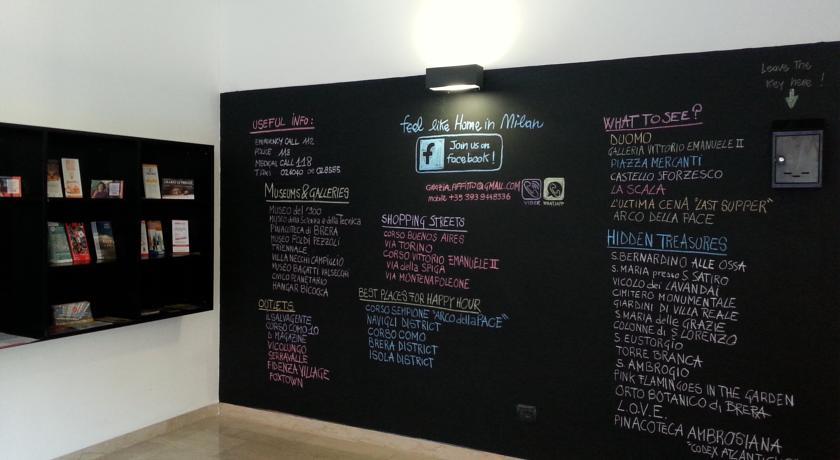 USEFUL INFO:
EMERGENCY CALL 112
POLICE 113
MEDICAL CALL 118
TAXI 024040 or 028585
MUSEUMS & GALLERIES
MUSEO del '900
MUSEO della Scienza e della Tecnica
PINACOTECA di BRERA
MUSEO POLDI PEZZOLI
TRIENNALE
VILLA NECCHI CAMPIGLIO
MUSEO BAGATTI VALSECCHI
CIVICO PLANETARIO
HANGAR BICOCCA
OUTLETS
IL SALVAGENTE
CORSO COMO 10
D MAGAZINE
VICOLUNGO
SERRAVALLE
FIDENZA VILLAGE
FOXTOWN
feel like Home in Milan
f Join us on
facebook!
mobile +39 393 9448536
VIBER WHATSAPP
SHOPPING STREETS
CORSO BUENOS AIRES
VIA TORINO
CORSO VITTORIO EMANUELE II
VIA della SPIGA
VIA MONTENAPOLEONE
BEST PLACES FOR HAPPY HOUR
CORSO SEMPIONE "ARCO della PACE"
NAVIGLI DISTRICT
CORSO COMO
BRERA DISTRICT
ISOLA DISTRICT
Leave The
Key here!
WHAT TO SEE?
DUOMO
GALLERIA VITTORIO EMANUELE II
PIAZZA MERCANTI
CASTELLO SFORZESCO
LA SCALA
L'ULTIMA CENA "LAST SUPPER"
ARCO DELLA PACE
HIDDEN TREASURES
S. BERNARDINO ALLE OSSA
S. MARIA presso S. SATIRO
VICOLO dei LAVANDAI
CIMITERO MONUMENTALE
GIARDINI DI VILLA REALE
S. MARIA delle GRAZIE
COLONNE di S. LORENZO
S EUSTORGIO
TORRE BRANCA
S. AMBROGIO
PINK FLAMINGOES IN THE GARDEN
ORTO BOTANICO di BRERA
L.O.V.E.
PINACOTECA AMBROSIANA